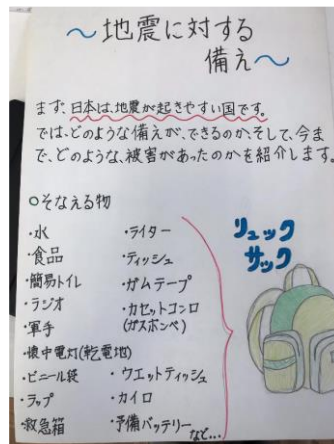 ～地震に対する
備え～
まず、日本は、地震が起きやすい国です。
では、どのような備えが、できるのか、そして、今ま
で、どのような、被害があったのかを紹介します。
○そなえる物
・水
・食品
・簡易トイレ
・ラジオ
・軍手
・懐中電灯(乾電池)
・ビニール袋
・ラップ
・救急箱
・ライター
・ティッシュ
・ガムテープ
・カセットコンロ
(ガスボンベ)
・ウエットティッシュ
・カイロ
・予備バッテリー
など…
リュック
サック